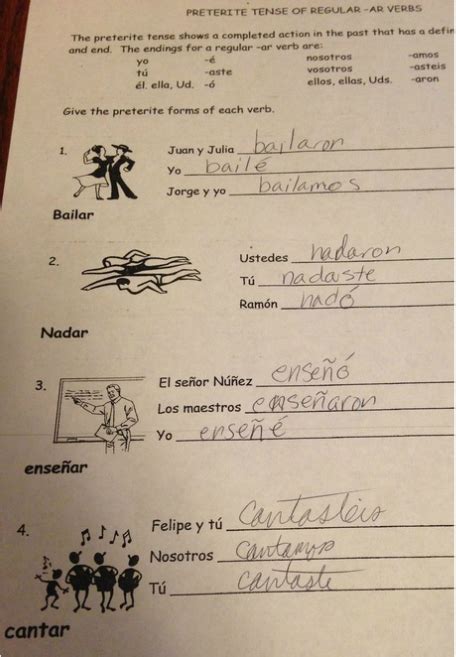 PRETERITE TENSE OF REGULAR -AR VERBS
The preterite tense shows a completed action in the past that has a defin
and end. The endings for a regular -ar verb are:
yo -é nosotros -amos
tú -aste vosotros -asteis
él, ella, Ud. -ó ellos, ellas, Uds. -aron
Give the preterite forms of each verb.
1. Juan y Julia bailaron
Yo bailé
Jorge y yo bailamos
Bailar
2. Ustedes nadaron
Tú nadaste
Ramón nadó
Nadar
3. El señor Núñez enseñó
Los maestros enseñaron
Yo enseñé
enseñar
4. Felipe y tú cantasteis
Nosotros cantamos
Tú cantaste
cantar